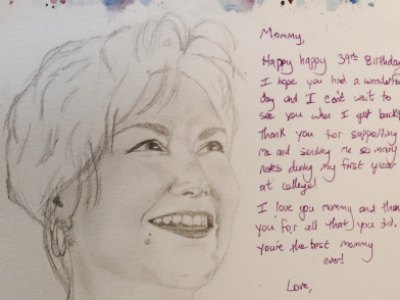 Mommy,
Happy happy 39th Birthday
I hope you had a wonderful
day and I can't wait to
see you when I get back!
Thank you for supporting
me and sending me so many
notes during my first year
at college!
I love you mommy and thank
you for all that you did.
You're the best mommy
ever!
Love,